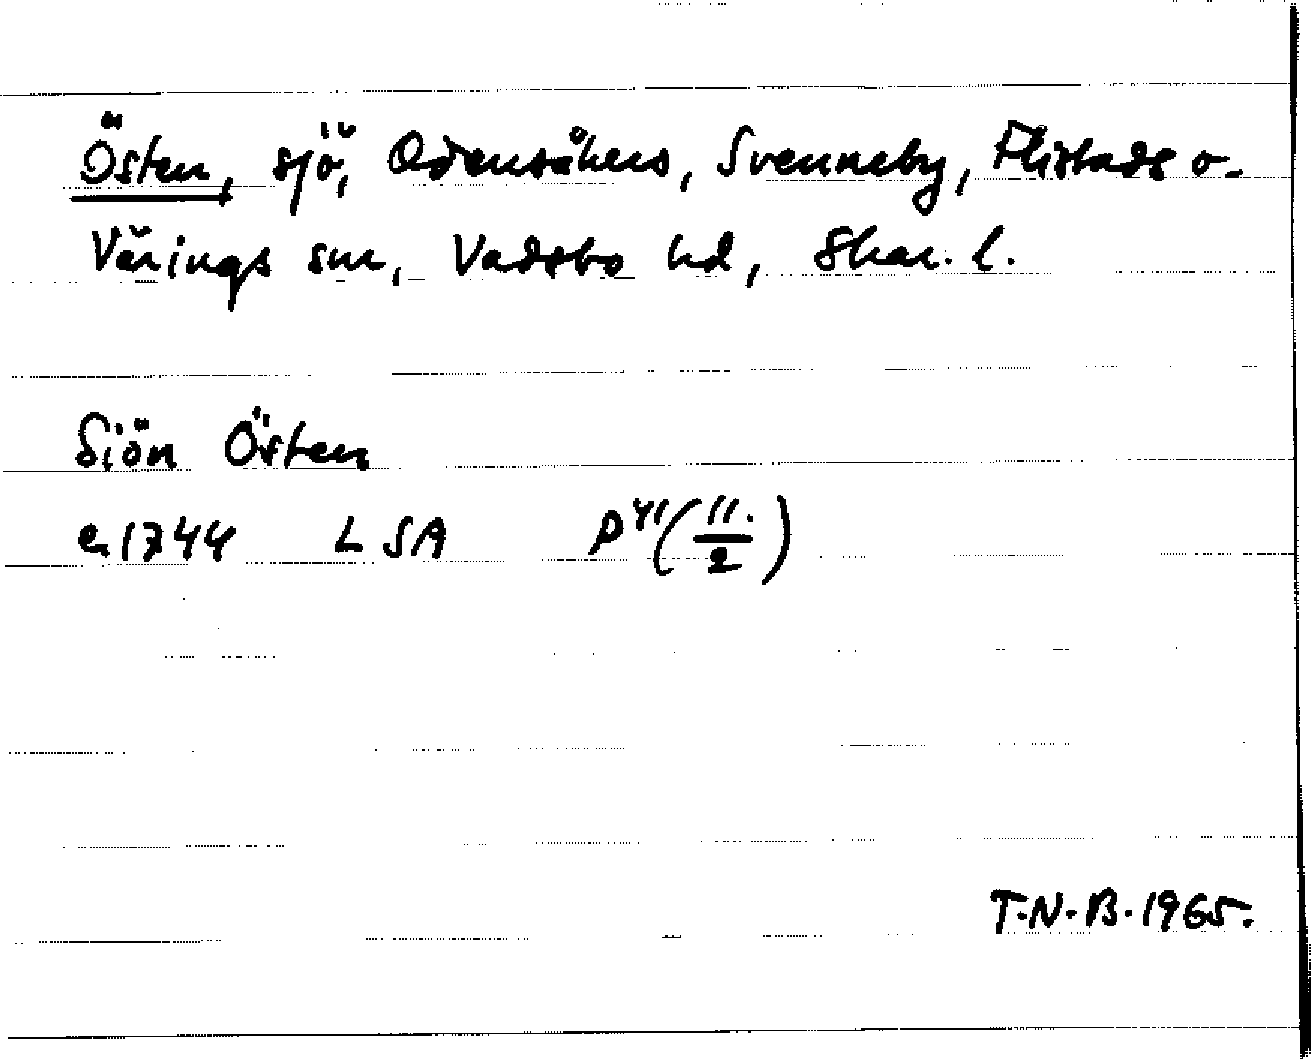 Östen, sjö, Odensåkers, Svenneby, Flistads o.
Värings snr, Vadsbo hd, Skar. l.
Siön Östen
e. 1744 LSA P41(11./2)
T.N.B. 1965.